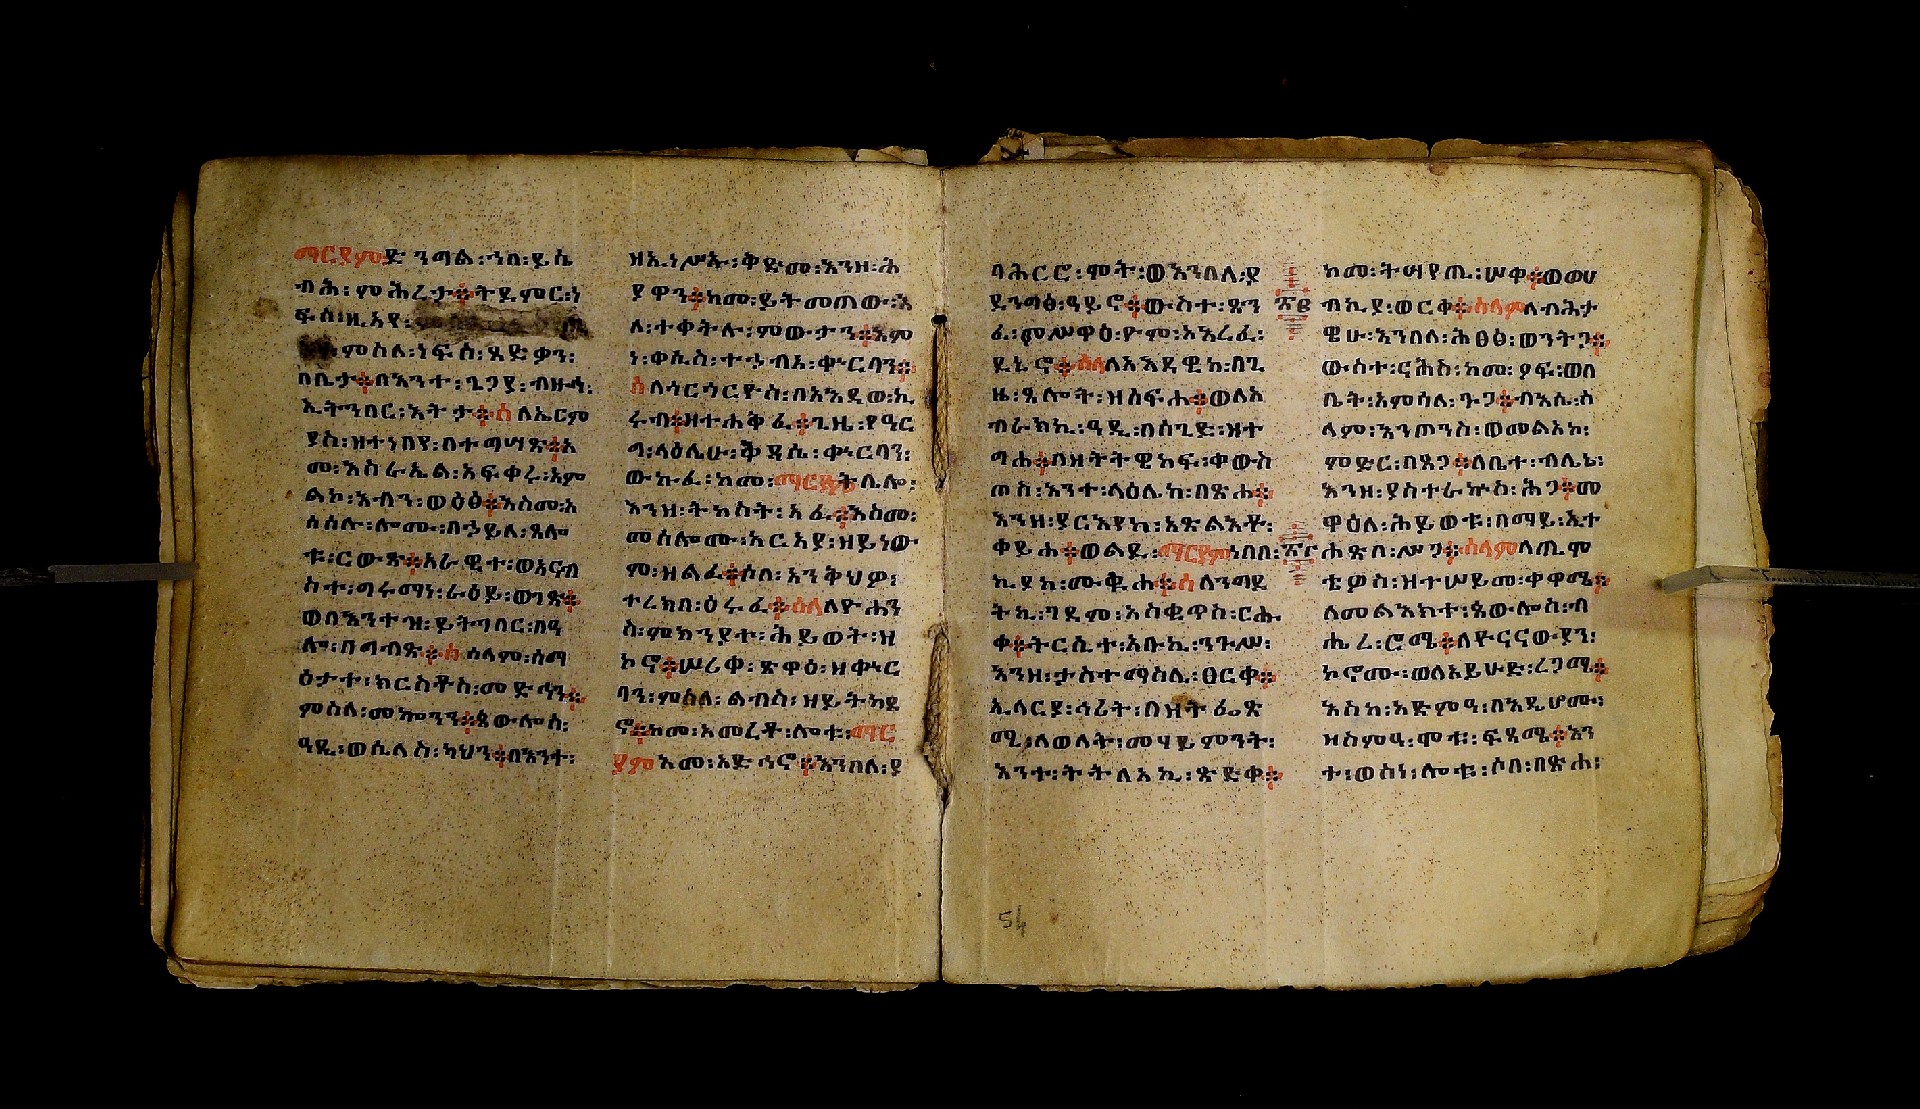 ማርያም፡ድንግል፡ኀበ፡ይሴ
ብሕ፡ምሕረታ፨ትዴምር፡ነ
ፍስ፡ዚአየ፡
ምስለ፡ነፍሰ፡ጻድቃን፡
በቤታ፨በእንተ፡ኄጋ፡ያ፡ብዙኅ፡
ኢትንበር፡አትታ፨ሰላለኤርም
ያስ፡ዘተነበየ፡በተግሣጽ፨አ
መ፡እስራኤል፡አፍቀረ፡አም
ልኮ፡እብን፡ወዕፅ፨እስመ፡አ
ሰሰሉ፡ሎሙ፡በኃይለ፡ጸሎ
ቱ፡ርውጽ፨አራዊተ፡ወአርብ
ስተ፡ግሩማነ፡ራዕይ፡ወገጽ፨
ወበእንተዝ፡ይትገበር፡በዓ
ሉ፡በግብጽ፨ሰ ሰላም፡ሰማ
ዕታተ፡ክርስቶስ፡መድኅን፨
ምስለ፡መኰንን፨ጳውሎስ፡
ዓዲ፡ወሲላስ፡ካህን፨በእንተ፡
ዘኢነሥኡ፡ቅድመ፡እንዘ፡ሕ
ያዋን፨ከመ፡ይትመጠው፡እ
ለ፡ተቀትሉ፡ምውታን፨እም
ነ፡ቀሲስ፡ተኀብአ፡ቍርባን፨
ሰላለኅርኅርዮስ፡በአኢዲወ፡ኪ
ሩብ፨ዘተሐቅፈ፨ጊዜ፡የዓር
ግ፡ላዕሌሁ፡ቅዳሴ፡ቍርባን፡
ውኩፈ፡ከመ፡ማርያም፡ትሌሎ፡
እንዘ፡ትከስት፡አፈ፨እስመ፡
መሰሎሙ፡አርአያ፡ዘይነው
ም፡ዘልፈ፨ሶበ፡አንቅህዎ፡
ተረክበ፡ዕሩፈ፨ሰላለዮሐን
ስ፡ምክንያተ፡ሕይወት፡ዘ
ኮኖ፨ሠሪቀ፡ጽዋዕ፡ዘቍር
ባን፡ምስለ፡ልብስ፡ዘይትካደ
ኖ፨ከመ፡አመረቶ፡ሎቱ፡ማር
ያም፡እመ፡አድኅኖ፨እንበለ፡ያ
ባሕርሮ፡ሞት፡ወእንበለ፡ያ
ደንግፅ፡ዓይኖ፨ውስተ፡ጽን
ፈ፡ምሥዋዕ፡ዮም፡አእረፈ፡
ዴኔኖ፨ሰላለአእዳዊከ፡በጊ
ዜ፡ጸሎት፡ዝስፍሐ፨ወለአ
ብራክኪ፡ዓዲ፡በሰጊድ፡ዝተ
ግሐ፨በዘትትዌከፍ፡ቀውስ
ጦስ፡እንተ፡ላዕሌከ፡በጽሐ፨
እንዘ፡ያርእየከ፡አጽልእቶ፡
ቀይሐ፨ወልዳ፡ማርያም፡ነበበ፡
ኪያከ፡ሙቁሐ፨ሰ ለንግደ
ትኪ፡ገዳም፡አስቄጥስ፡ርሑ
ቀ፨ትርሲተ፡አቡኪ፡ንጉሥ፡
እንዘ፡ታስተማስሊ፡ፀርቀ፨
ኢላርያ፡ኅሪት፡በዝትፌጽ
ሚ፡ለወለት፡መሃይምንት፡
እንተ፡ትትለአኪ፡ጽድቀ፨
ከመ፡ትሣየጢ፡ሠቀ፨ወወሀ
ብኪያ፡ወርቀ፨ሰላም፡ለብሕታ
ዊሁ፡እንበለ፡ሕፀፅ፡ወንትጋ፨
ውስተ፡ርሕስ፡ከመ፡ዖፍ፡ወበ
ቤት፡አምሳለ፡ጉጋ፨ብእሴ፡ሰ
ላም፡እንጦንስ፡ወመልአከ፡
ምድር፡በጸጋ፨ለቤተ፡ብሌኔ፡
እንዘ፡ያስተራኵስ፡ሕጋ፨መ
ዋዕለ፡ሕይወቱ፡በማይ፡ኢተ
ሐጽበ፡ሥጋ፨ሰላም፡ለጢሞ
ቴዎስ፡ዘተሠይመ፡ቀዋሜ፨
ለመልእክተ፡ጳውሎስ፡ብ
ሔረ፡ሮሜ፨ለዮናናውያን፡
ኮኖሙ፡ወለአይሁድ፡ረጋሜ፨
እስከ፡አድምዓ፡በእደሆሙ፡
ዘስምዓ፡ሞቱ፡ፍጻሜ፨እን
ተ፡ወሰነ፡ሎቱ፡ሶበ፡በጽሐ፡
54